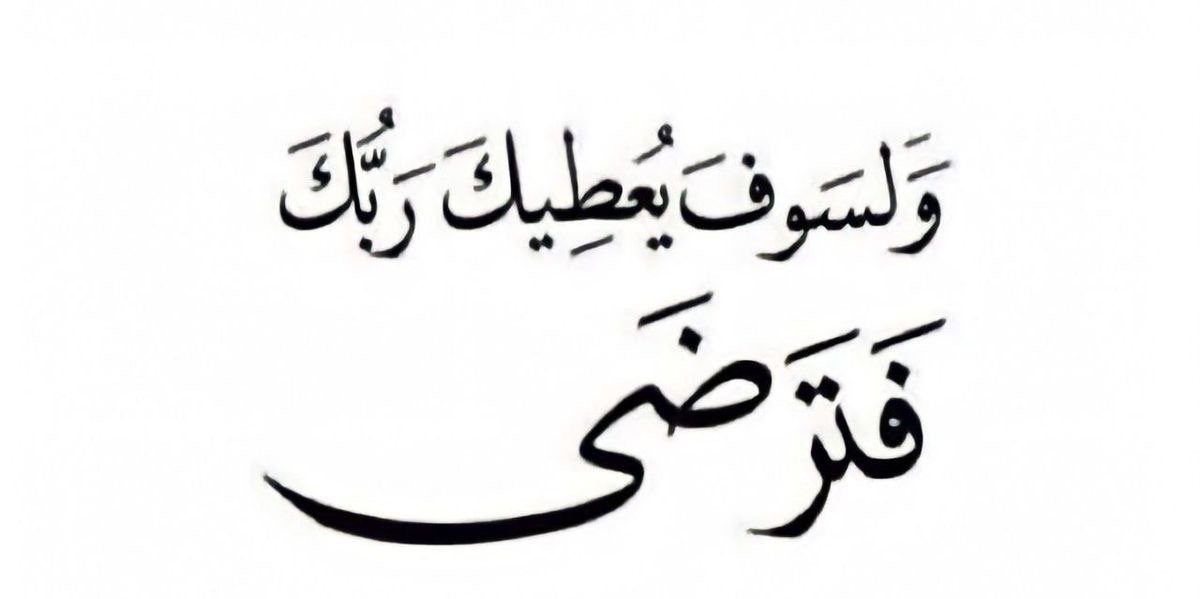 وَلَسَوفَ يُعطِيكَ رَبُّكَ
فَتَرَضَى